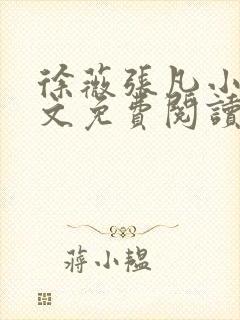 徐薇張凡小
文免費閱讀
蔣小韞